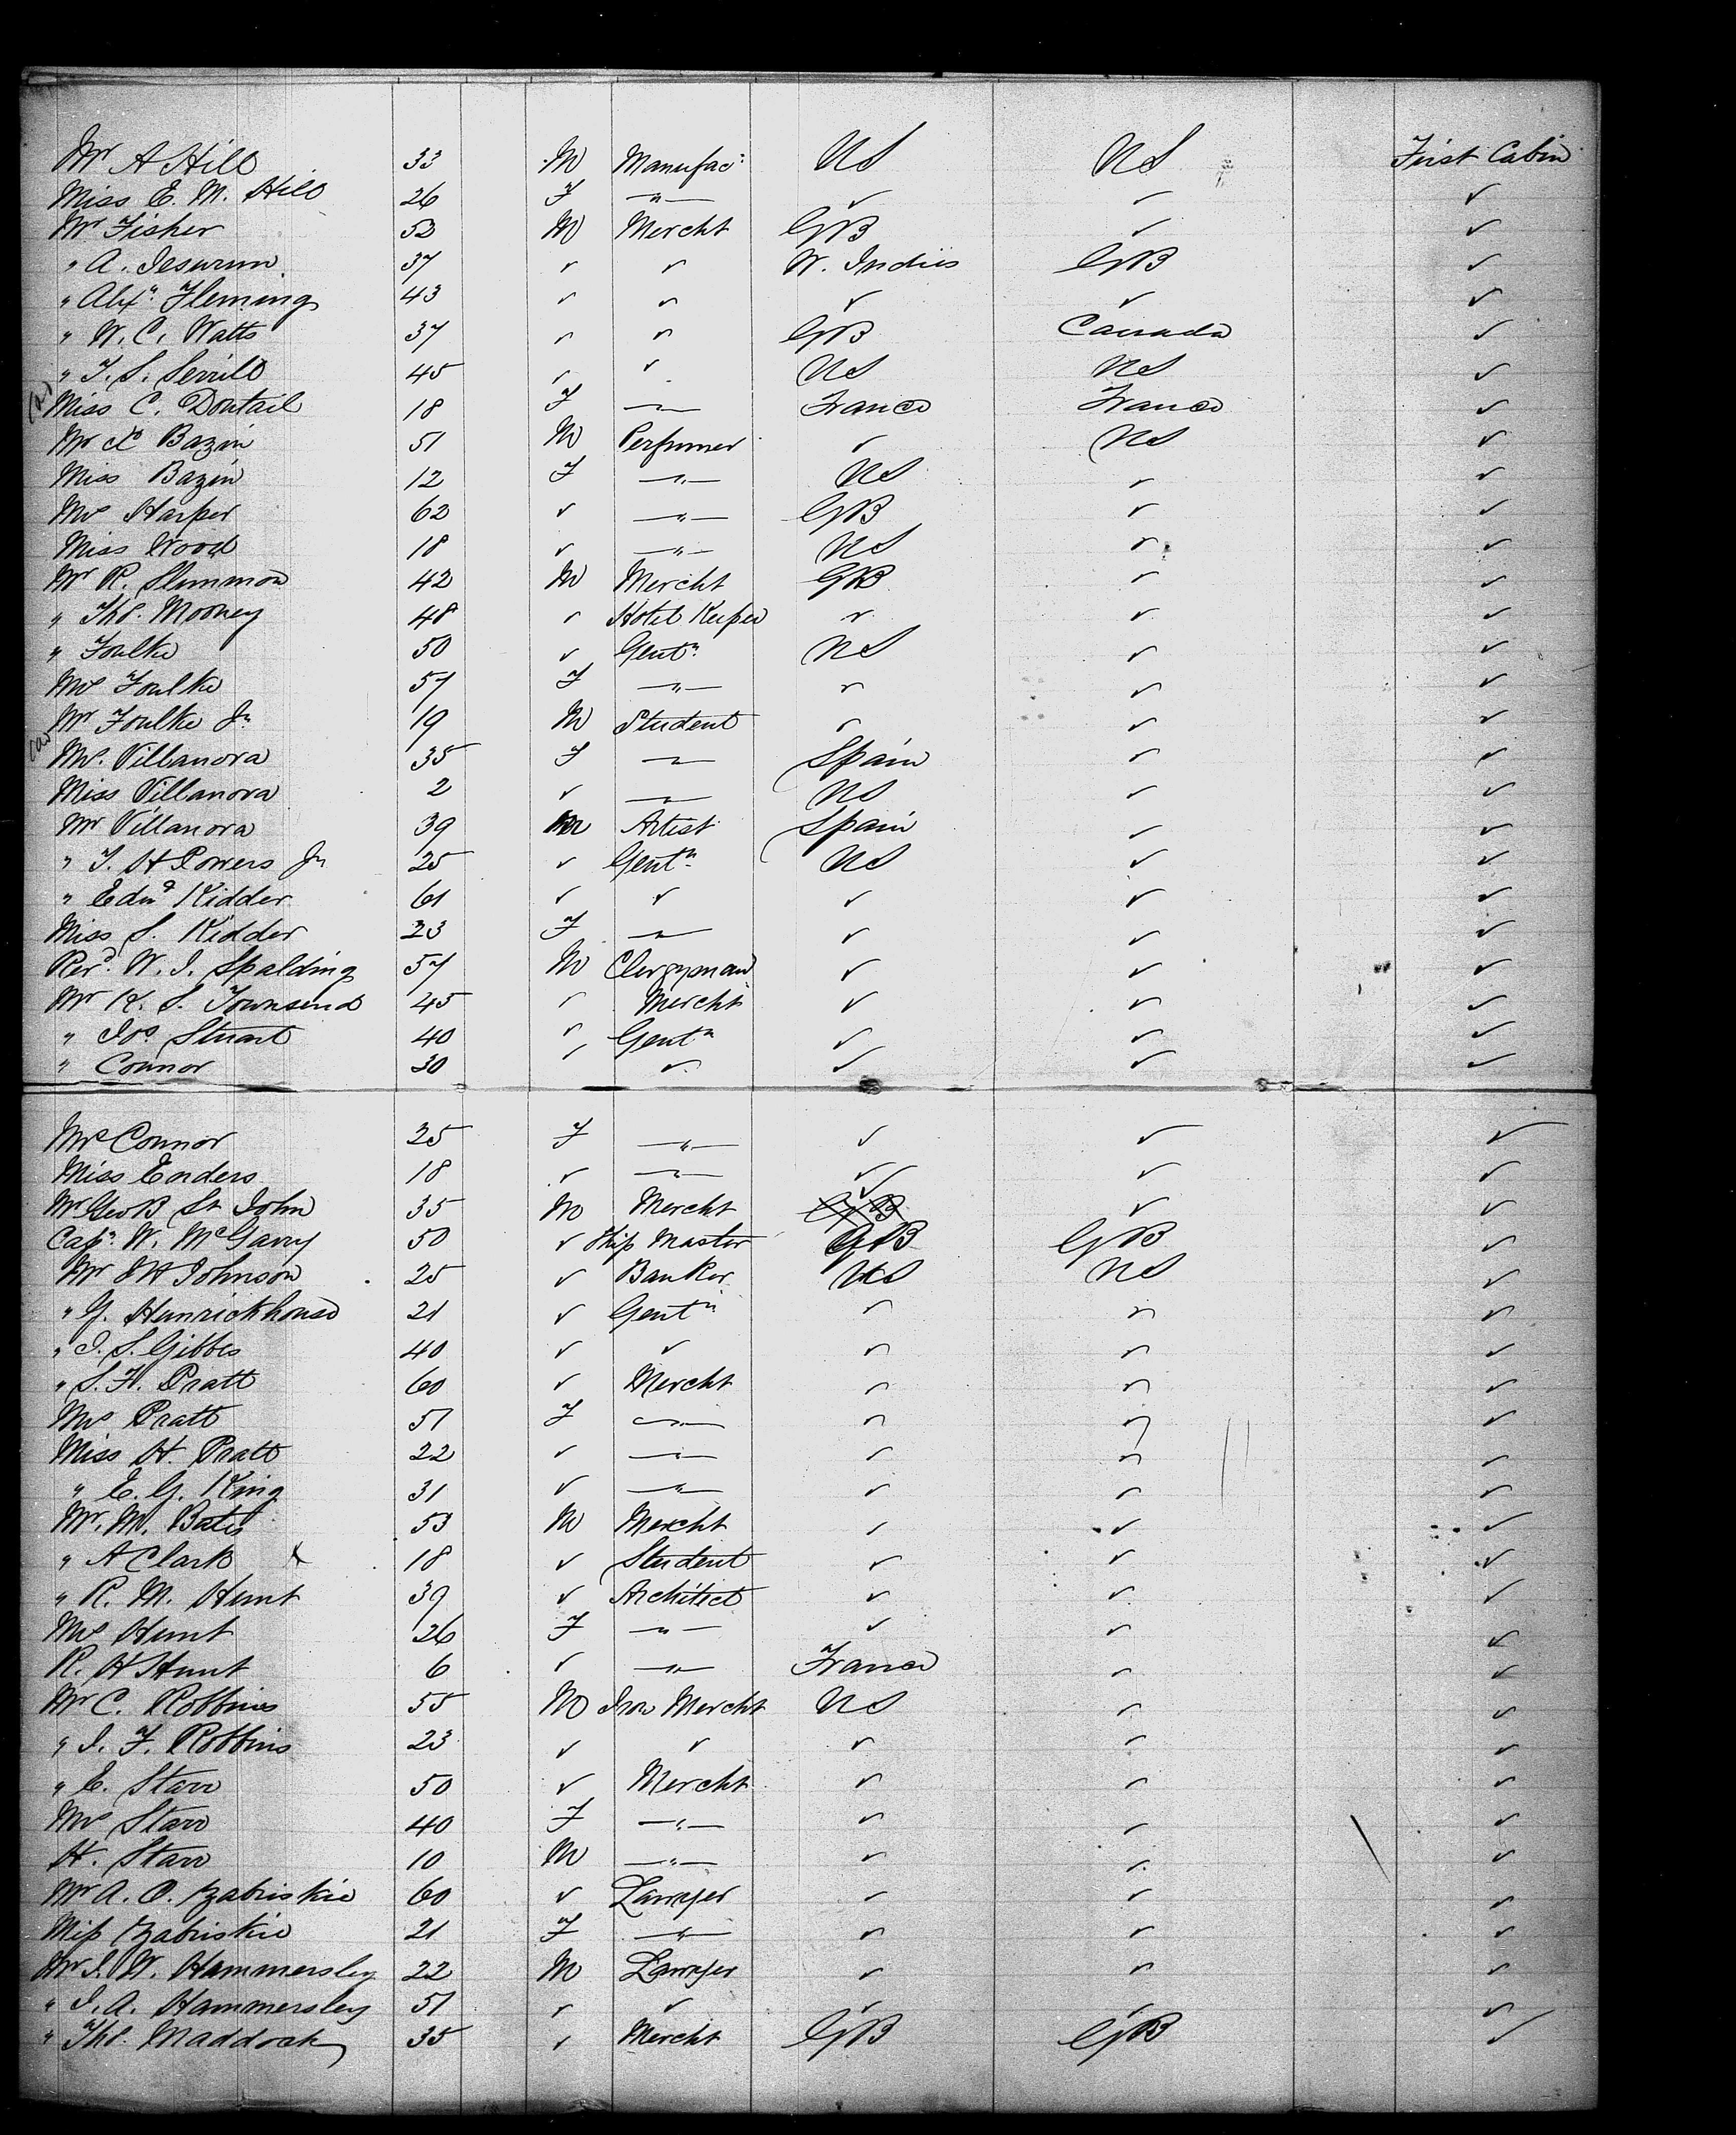 Mr A Hill 33 M Manufacr US US First Cabin
Miss E. M. Hill 26 F — " — ✓ ✓ ✓
Mr Fisher 52 M Mercht GB ✓ ✓
" A. Jesurun 37 ✓ ✓ W. Indies GB ✓
" Alexr Fleming 43 ✓ ✓ ✓ ✓ ✓
" W. C. Watts 37 ✓ ✓ GB Canada ✓
" T. S. Serrill 45 ✓ ✓ US US ✓
Miss C. Doutail 18 F — " — France France ✓
Mr X Bazin 51 M Perfumer ✓ US ✓
Miss Bazin 12 F — " — US ✓ ✓
Mrs Harper 62 ✓ — " — GB ✓ ✓
Miss Wood 18 ✓ — " — US ✓ ✓
Mr R. Slimmon 42 M Mercht GB ✓ ✓
" Thos. Mooney 48 ✓ Hotel Keeper ✓ ✓ ✓
" Foulke 50 ✓ Gentn US ✓ ✓
Mrs Foulke 57 F — " — ✓ ✓ ✓
Mr Foulke Jr 19 M Student ✓ ✓ ✓
Mrs. Villanova 35 F — " — Spain ✓ ✓
Miss Villanova 2 ✓ — " — US ✓ ✓
Mr Villanova 39 M Artist Spain ✓ ✓
" T. H Powers Jr 25 ✓ Gentn US ✓ ✓
" Edwd Kidder 61 ✓ ✓ ✓ ✓ ✓
Miss S. Kidder 23 F — " — ✓ ✓ ✓
Revd. W. J. Spalding 57 M Clergyman ✓ ✓ ✓
Mr K. S. Townsend 45 ✓ Mercht ✓ ✓ ✓
" Jos. Stuart 40 ✓ Gentn ✓ ✓ ✓
" Connor 30 ✓ ✓ ✓ ✓ ✓
Mrs Connor 25 F — " — ✓ ✓ ✓
Miss Enders 18 ✓ — " — ✓ ✓ ✓
Mr Geo B St John 35 M Mercht ✓ ✓ ✓
Capn. W. McGarry 50 ✓ Ship Master GB GB ✓
Mr J H Johnson 25 ✓ Banker US US ✓
" G. Henrickhouse 21 ✓ Gentn ✓ ✓ ✓
" J. S. Gibbes 40 ✓ ✓ ✓ ✓ ✓
" S. F. Pratt 60 ✓ Mercht ✓ ✓ ✓
Mrs Pratt 51 F — " — ✓ ✓ ✓
Miss H. Pratt 22 ✓ — " — ✓ ✓ ✓
" E. G. King 31 ✓ — " — ✓ ✓ ✓
Mr. M. Bates 53 M Mercht ✓ ✓ ✓
" A Clark X 18 ✓ Student ✓ ✓ ✓
" R. M. Hunt 39 ✓ Architect ✓ ✓ ✓
Mrs Hunt 26 F — " — ✓ ✓ ✓
R. H Hunt 6 ✓ — " — France ✓ ✓
Mr C. Robbins 55 M Iron Mercht US ✓ ✓
" J. F. Robbins 23 ✓ ✓ ✓ ✓ ✓
" E. Starr 50 ✓ Mercht ✓ ✓ ✓
Mrs Starr 40 F — " — ✓ ✓ ✓
H. Starr 10 M — " — ✓ ✓ ✓
Mr A. O. Zabriskie 60 ✓ Lawyer ✓ ✓ ✓
Miss Zabriskie 21 F — " — ✓ ✓ ✓
Mr J. W. Hammersley 22 M Lawyer ✓ ✓ ✓
" J. A. Hammersley 51 ✓ ✓ ✓ ✓ ✓
" Thos. Maddock 35 ✓ Mercht GB GB ✓